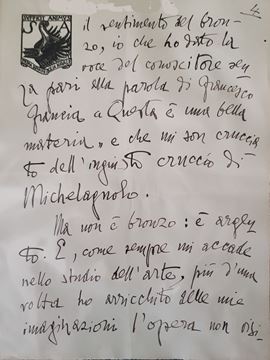 4
il sentimento del bron-
zo, io che ho dato la
voce del conoscitore sen
za pari alla parola di Francesco
Francia "Questa è una bella
materia", e che mi son cruccia
to dell'ingiusto cruccio di
Michelagnolo.
Ma non è bronzo: è argen
to. E, come sempre mi accade
nello studio dell'arte, più d'una
volta ho arricchito delle mie
imaginazioni l'opera non